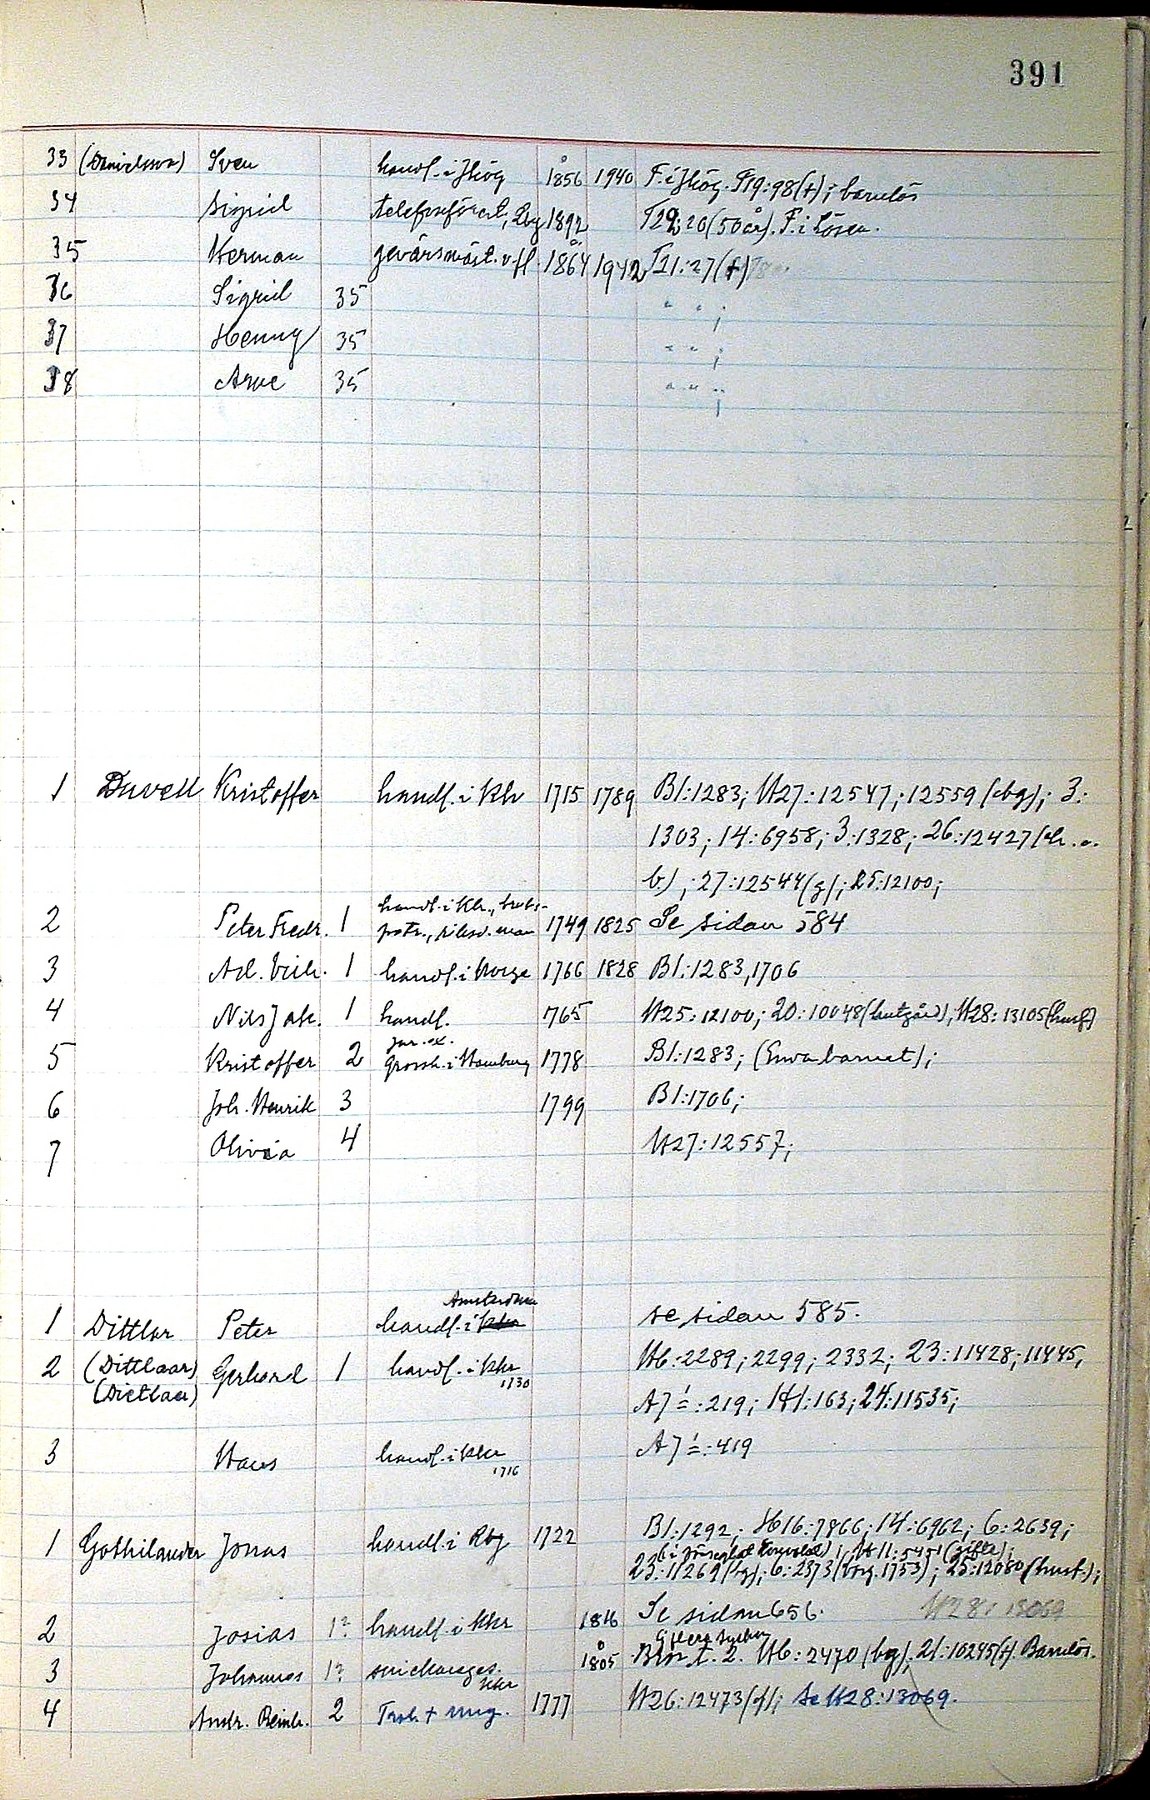 391
33 (Danielsson) Sven handl. i Jhög 1856 1940 F. i Jhög. T19:98(+); barnlös
34 Sigrid telefonförest., Lbg 1892 T29:20(50 år). F. i Lösen.
35 Herman gevärsmäst. v. fl. 1864 1942 T21:27(+)
36 Sigrid 35 " " ;
37 Henny 35 " " ;
38 Arne 35 " " ;
1 Duvell Kristoffer handl. i Khr 1715 1789 B1:1283; H27:12547; 12559 (bg); 3:
1303; 14:6958; 3:1328; 26:12427
b.); 27:12544(g); 25:12100;
handl. i Khr., bruks-
2 Peter Fredr. 1 patr., riksd.man 1749 1825 Se sidan 584
3 Ad. Vilh. 1 handl. i Norge 1766 1828 B1:1283, 1706
4 Nils Jak. 1 handl. 1765 H25:12100; 20:10048 H28:13105
5 Kristoffer 2 grossh. i Hamburg 1778 B1:1283; (Enda barnet);
6 Joh. Henrik 3 1799 B1:1706;
7 Olivia 4 H27:12557;
Amsterdam
1 Dittlar Peter handl. i Khr se sidan 585.
2 (Dittlaar) Gerhard 1 handl. i Khr H6:2289; 2299; 2332; 23:11428; 11445;
(Dietlaer) 1730 A7 :219; H1:163; 24:11535;
3 Hans handl. i Khr A7 :419
1716
1 Gothilander Jonas handl. i Rbg 1722 B1:1292; H16:7866; 14:6962; 6:2639;
H11:5451 (gifter);
23:11269(bg); 6:2373 1753); 25:12080 (hust.);
2 Josias 1? handl. i Khr 1816 Se sidan 656. H28:13069
3 Johannes 1? snickareges. 1805 t. 2. H6:2470 (bg); 21:10245(+). Barnlös.
Khr
4 Andr. Reinh. 2 1777 H26:12473 Se H28:13069.